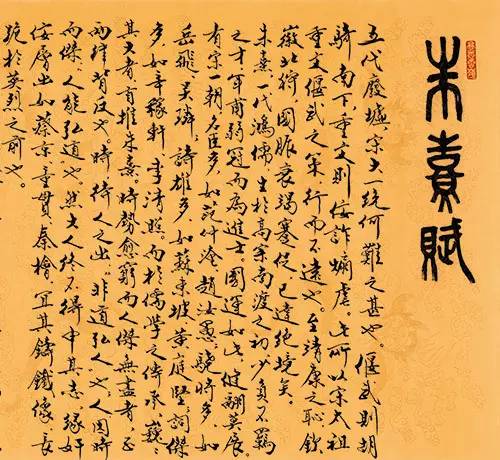 朱熹賦
五代廢墟宋大一統何難之甚也偃武則胡
騎南下重文則佞詐煽虐此所以宋太祖
重文偃武之策行而不遠也至靖康之恥欽
徽北狩國脈衰竭蹇促已達絕境矣
朱熹一代鴻儒生於高宗南渡之初少負不羈
之才年甫弱冠而為進士國運如此健翮莫展
有宗一朝名臣多如范仲淹趙汝愚驍將多如
岳飛吳璘詩雄多如蘇東坡黃庭堅詞傑
多如辛稼軒李清照而於儒學之傳承巍巍
其大者首推朱熹時勢愈窮而人傑無盡者正
而締背反也時待人之出非道弘人也人因時
而傑人能弘道也然大人終不得中其志緣奸
佞屢出如蔡京童貫秦檜宜其鑄鐵像長
跪於英烈之前也